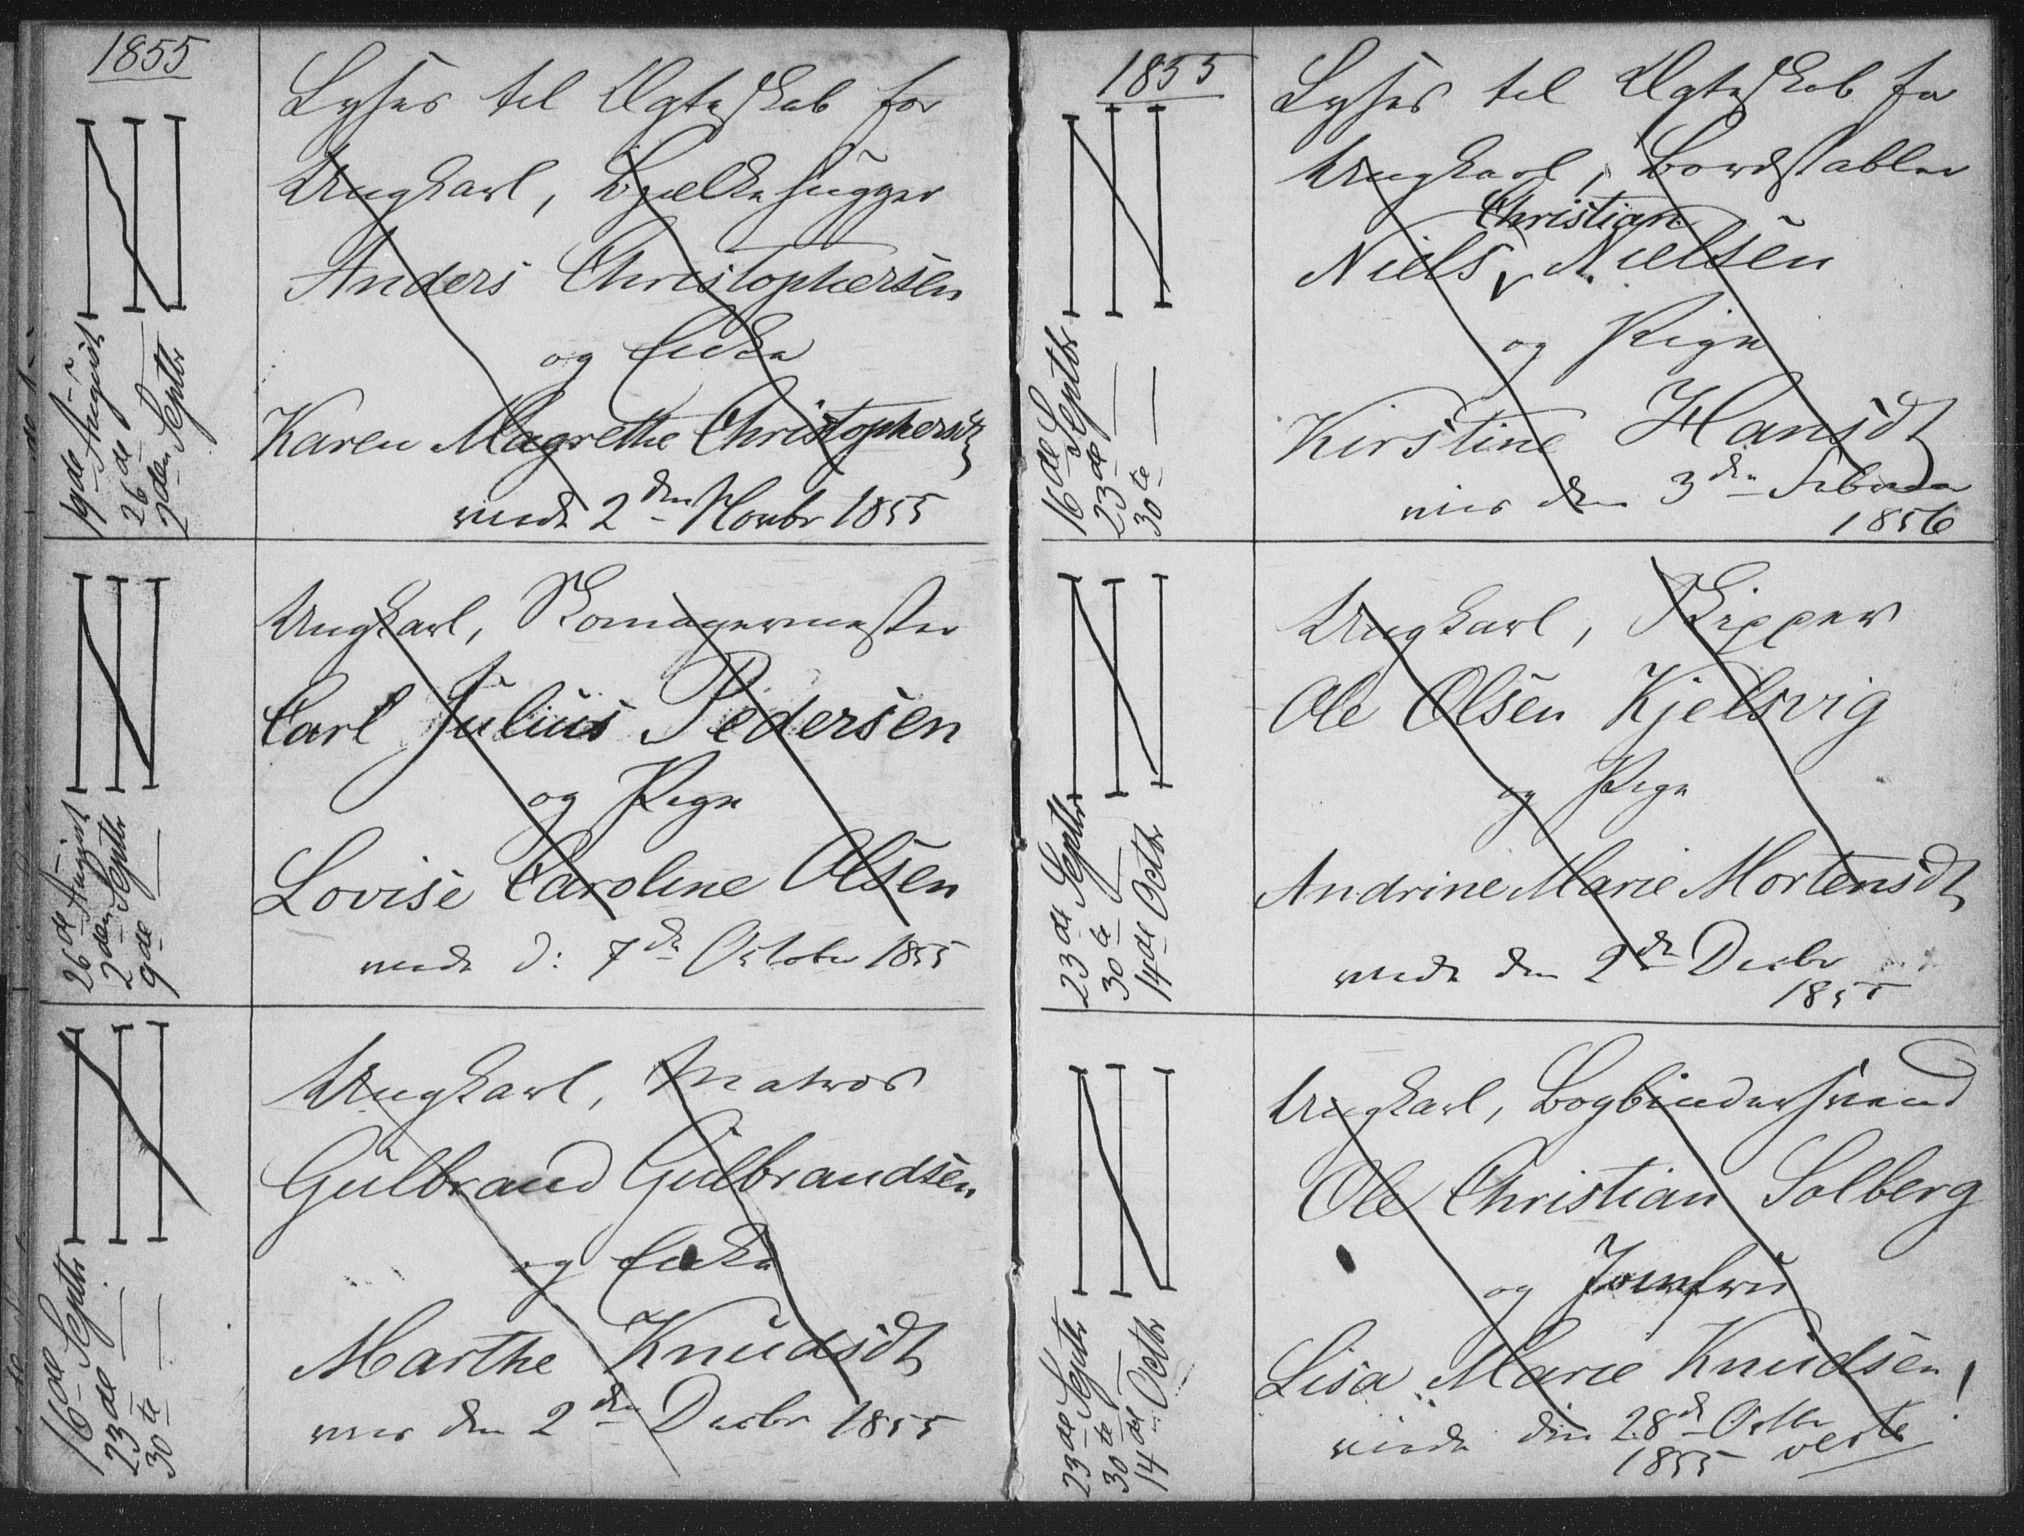 1855
Lyses til Ægteskab for
Ungkarl, Bjelkehugger
Anders Christophersen
og Enke
Karen Magrethe Christophersdt
viede 2den Novbr 1855
19de August
26de
2den Septbr
Ungkarl, Skomagermester
Carl Julius Pedersen
og Pige
Lovise Caroline Olsen
viede d: 7de October 1855
26de August
2den Septbr
9de
Ungkarl, Matros
Gulbrand Gulbrandsen
og Enke
Marthe Knudsdt
den 2den Decbr 1855
16de Septbr
23de
30te
1855
Lyses til Ægteskab for
Ungkarl, Bordstabler
Christian
Niels Nielsen
og Pige
Kirstine Hansdt
den 3den Februar
1856
16de Septbr
23de
30te
Ungkarl, Skipper
Ole Olsen Kjelsvig
og Pige
Andrine Marie Mortensdt
viede den 2de Decbr
1855
23de Septbr
30te
14de Octbr
Ungkarl, Bogbindersvend
Ole Christian Solberg
og Jomfru
Lisa Marie Knudsen
viede den 28de Octbr
1855 verte
23de Septbr
30te
14de Octbr